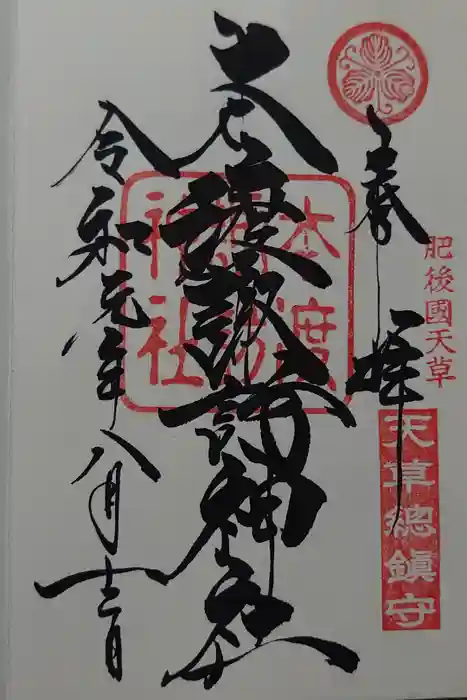 奉拝
肥後國天草
天草總鎮守
本渡諏訪神社
本渡諏訪神社
令和元年八月十三日